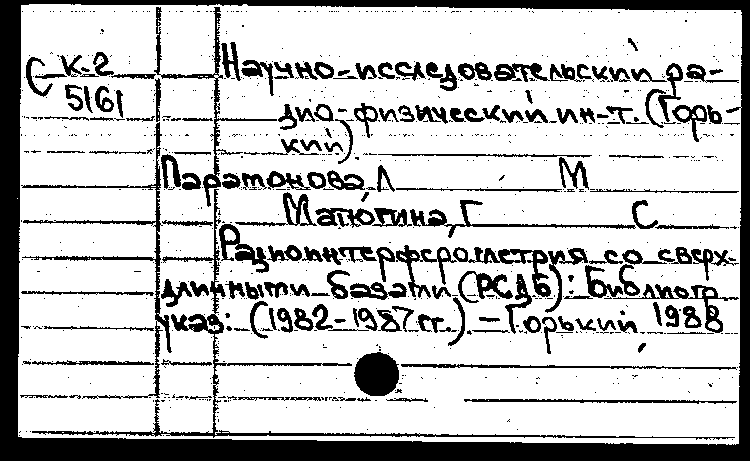 С К-2 Научно-исследовательский ра-
5161 дио-физический ин-т. (Горь-
кий)
Паратонова, Л М
Матюгина, Г С
Радиоинтерферометрия со сверх-
длинными базами (РСДБ): Библиогр
указ: (1982-1987 гг.) - Горький, 1988